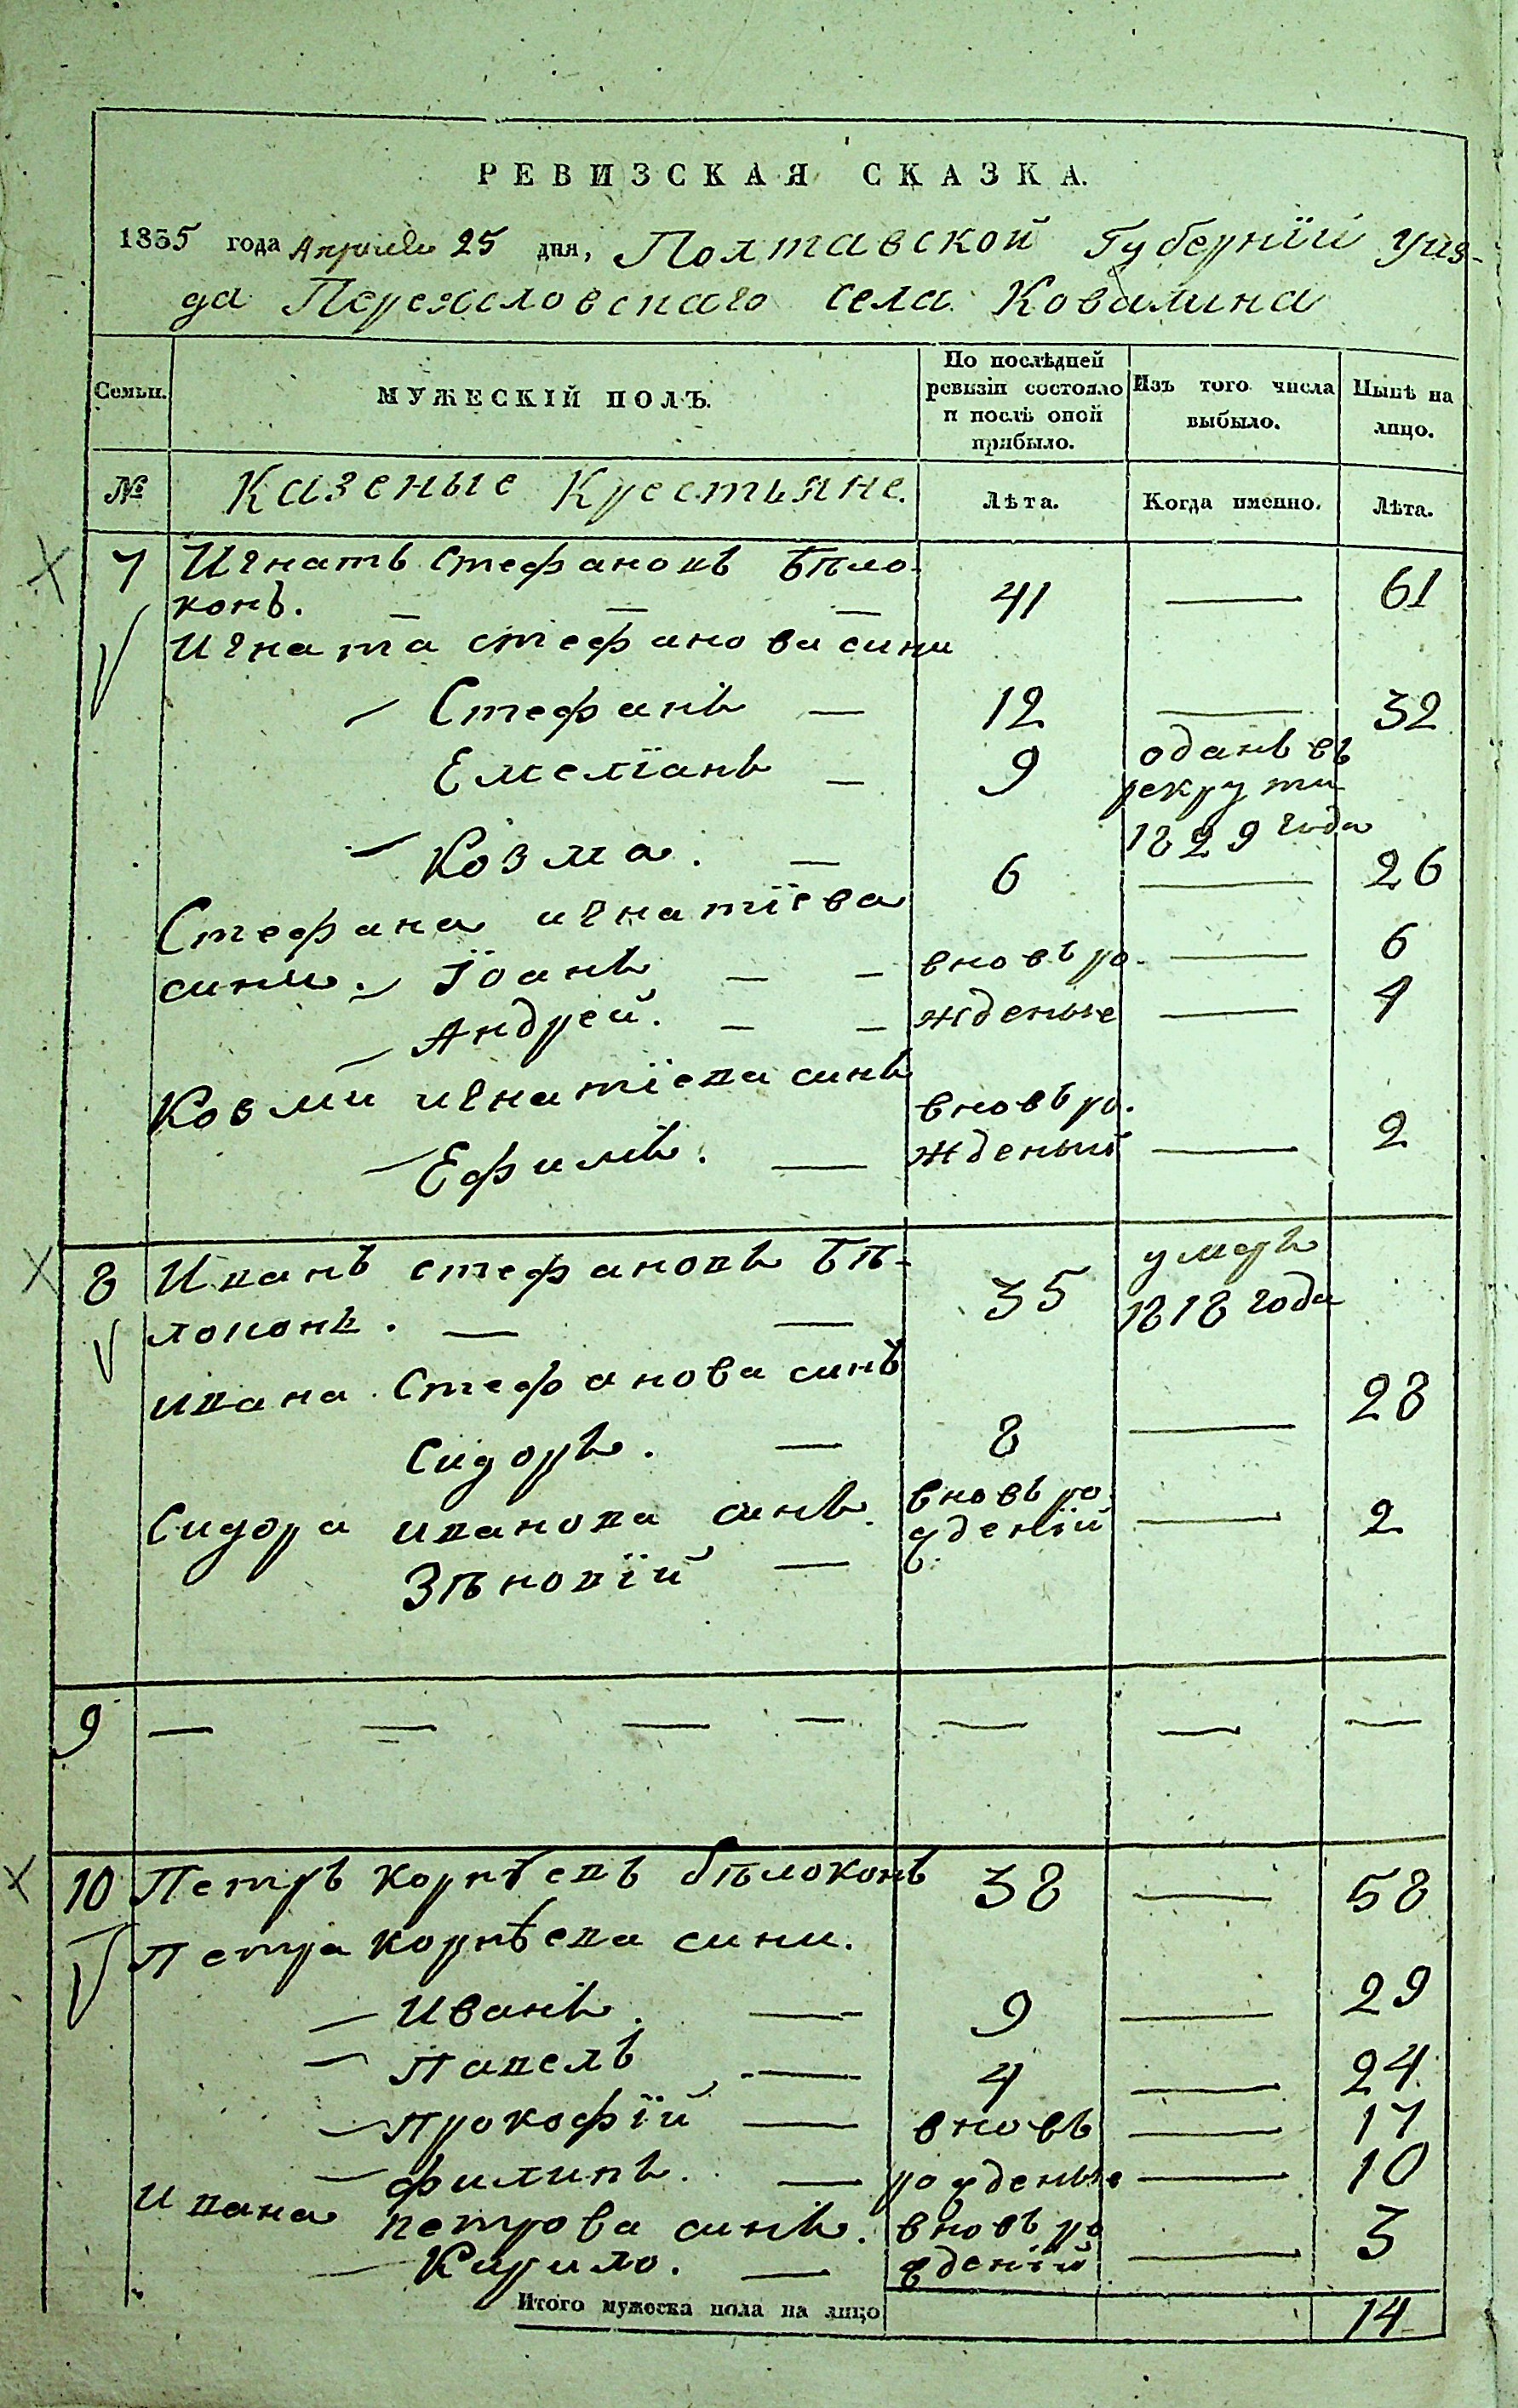 РЕВИЗСКАЯ СКАЗКА.
1835 года Априля 25 дня, Полтавской Губернїи уиз-
да Переясловскаго села Ковалина
Семьи. МУЖЕСКІЙ ПОЛЪ. По послѣдней ревизіи состояло и послѣ оной прибыло. Изъ того числа выбыло. Нынѣ на лицо.
№ Казеные Крестьяне. Лѣта. Когда именно. Лѣта.
7 Игнатъ Стефановъ Бѣло-
конъ. — — — 41 — 61
Игната стефанова сини
— Стефанъ — 12 — 32
Емелїанъ — 9 оданъ въ
рекрути
1829 года
— Козма. — 6 — 26
Стефана игнатїева
сини. — Їоанъ — — вновь ро- — 6
— Андрей. — — жденые — 4
Козми игнатїева синъ
вновь ро-
— Ефимъ. — жденый — 2
8 Иванъ стефановъ Бѣ- умеръ
локонъ. — — 35 1818 года
ивана Стефанова синъ
Сидоръ. — 8 — 28
Сидора иванова синъ. вновь ро-
Зѣновїй — жденїй — 2
9 — — — — — — —
10 Петръ корнѣевъ бѣлоконъ 38 — 58
Петра корнѣева сини.
— Иванъ. — 9 — 29
— Павелъ — 4 — 24
— Прокофїй — вновь — 17
— филипъ. — рожденые — 10
Ивана петрова синъ. вновь ро
— Кирило. — жденїй — 3
Итого мужеска пола на лицо 14